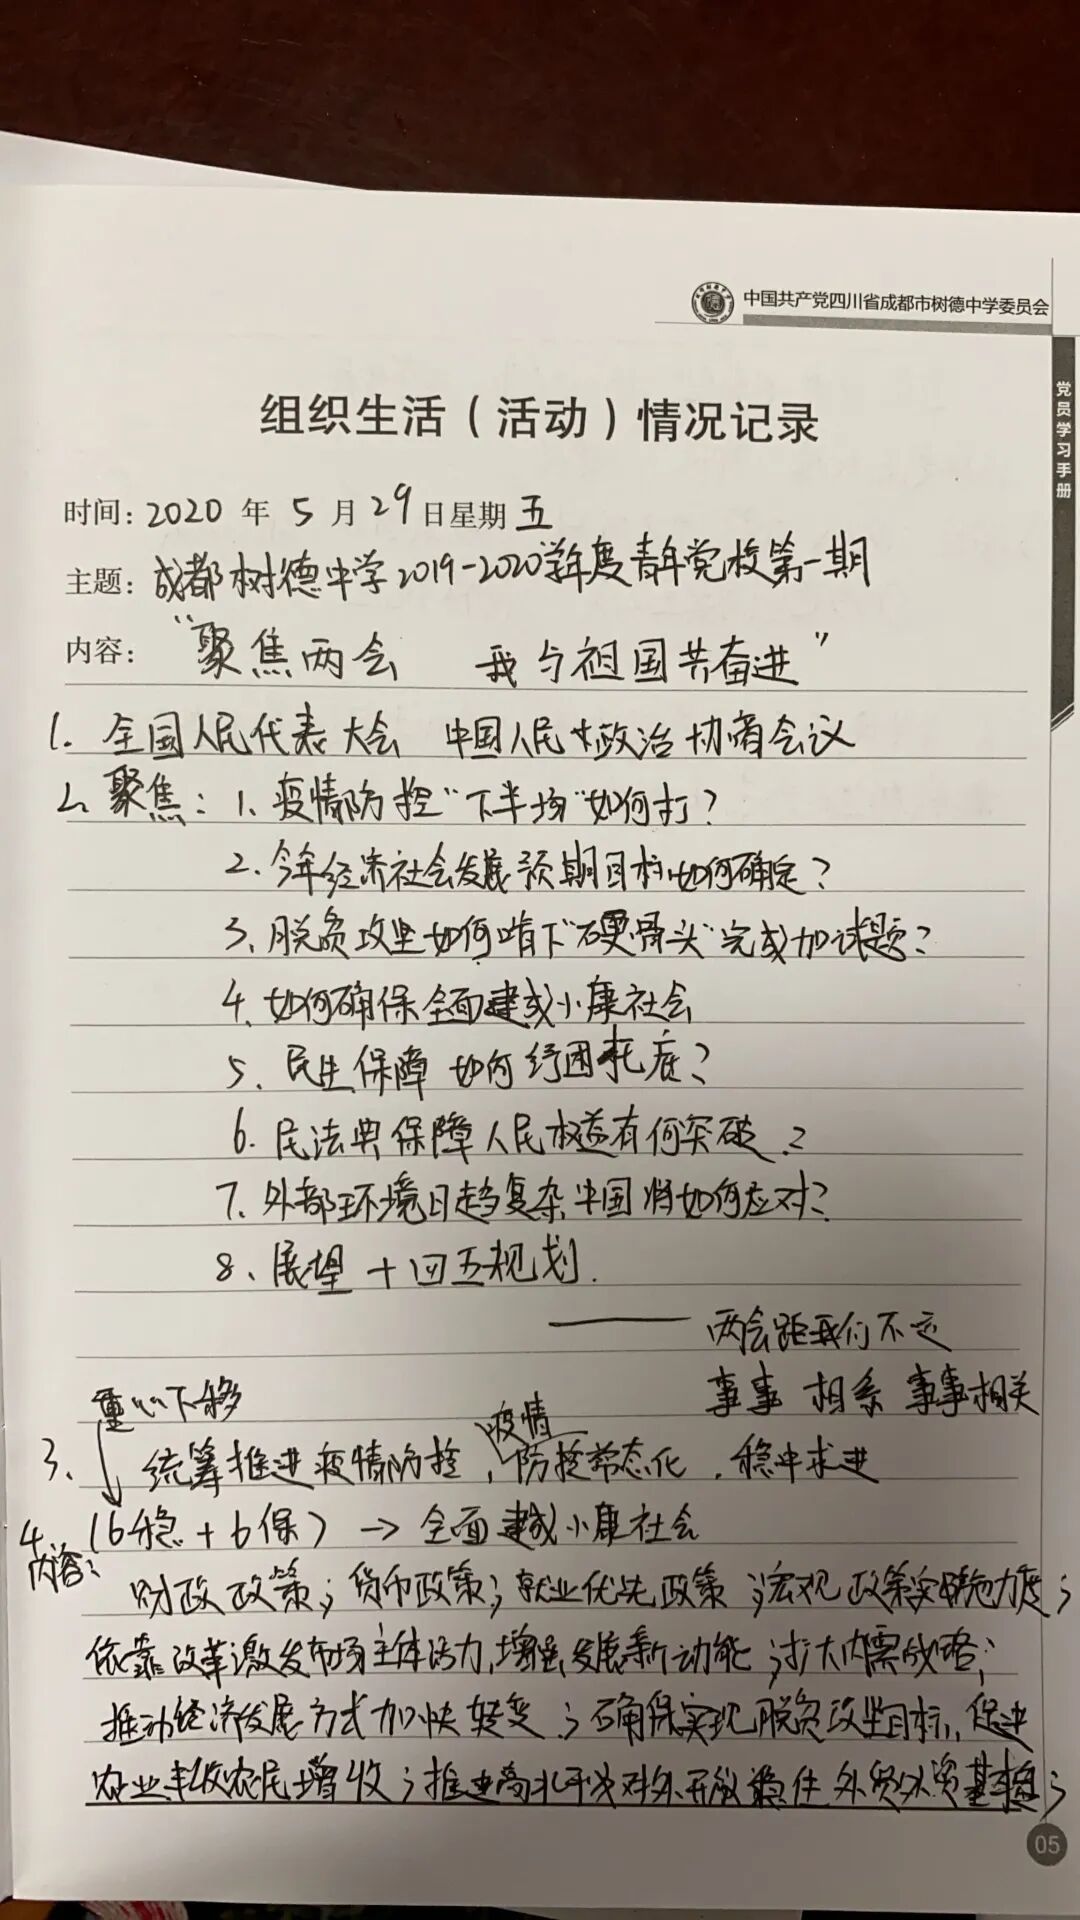 中国共产党四川省成都市树德中学委员会
党员学习手册
组织生活（活动）情况记录
时间：2020 年 5 月 29 日星期 五
主题：成都树德中学2019-2020学年度青年党校第一期
内容：“聚焦两会 我与祖国共奋进”
1. 全国人民代表大会 中国人民政治协商会议
2. 聚焦：1. 疫情防控“下半场”如何打？
2. 今年经济社会发展预期目标如何确定？
3、脱贫攻坚如何啃下“硬骨头”完成加试题？
4、如何确保全面建成小康社会
5、民生保障如何纾困托底？
6. 民法典保障人民权益有何突破？
7、外部环境日趋复杂中国将如何应对？
8、展望十四五规划.
—— 两会距我们不远
事事相系 事事相关
重心下移
疫情
3、统筹推进疫情防控，防控常态化，稳中求进
（6稳+6保）→全面建成小康社会
4、内容：
财政政策；货币政策；就业优先政策；宏观政策实施力度；
依靠改革激发市场主体活力，增强发展新动能；扩大内需战略；
推动经济发展方式加快转变；确保实现脱贫攻坚目标，促进
农业丰收农民增收；推进高水平对外开放稳住外贸外资基本盘；
05